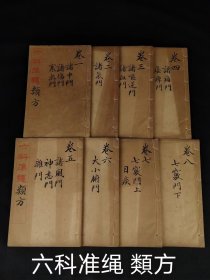 六科準繩
類方
卷一
諸中門
諸傷門
寒熱門
卷二
諸氣門
卷三
諸嘔逆門
諸血門
卷四
諸痛門
痿痺門
六科準繩
類方
卷五
諸風門
神志門
雜門
卷六
大小腑門
卷七
七竅門上
目疾
卷八
七竅門下
六科准绳 類方